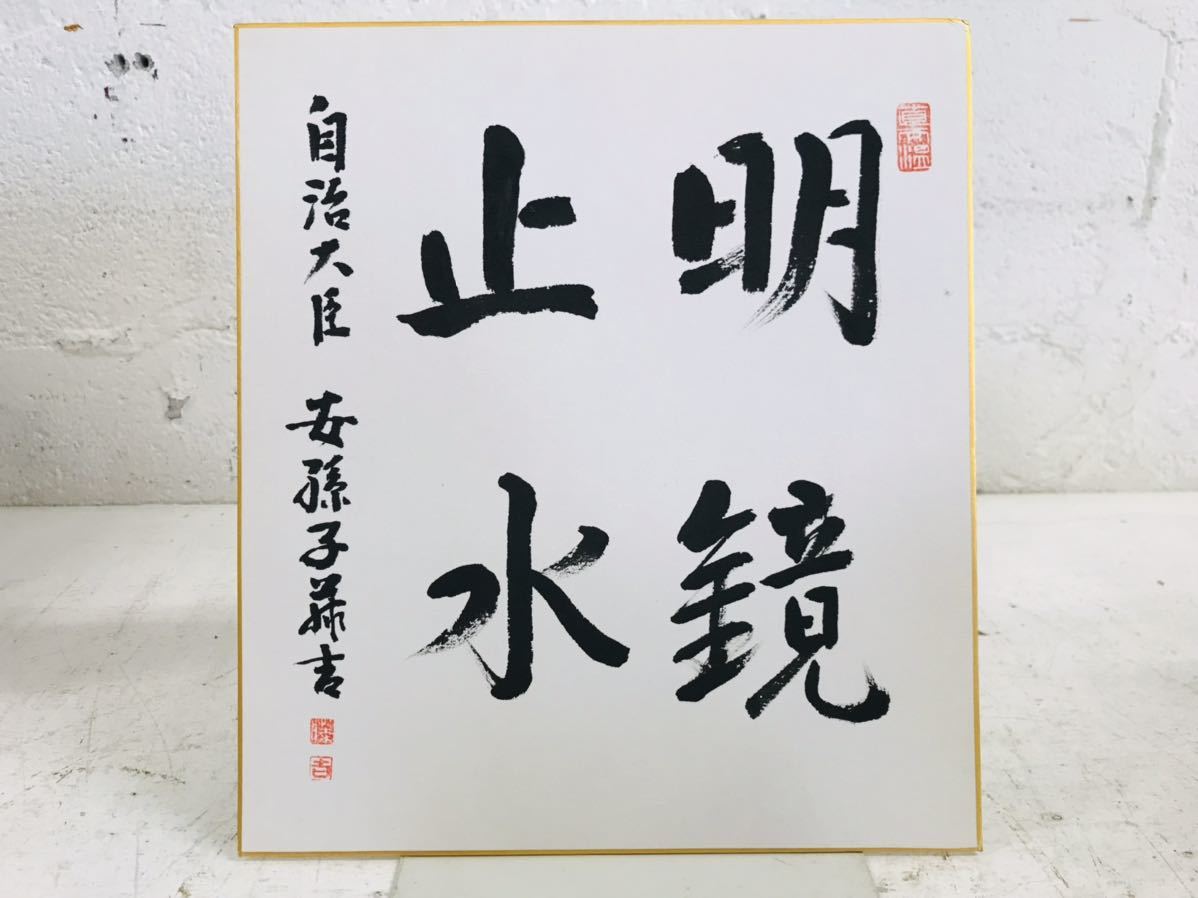 明鏡
止水
自治大臣 安孫子藤吉
藤
吉